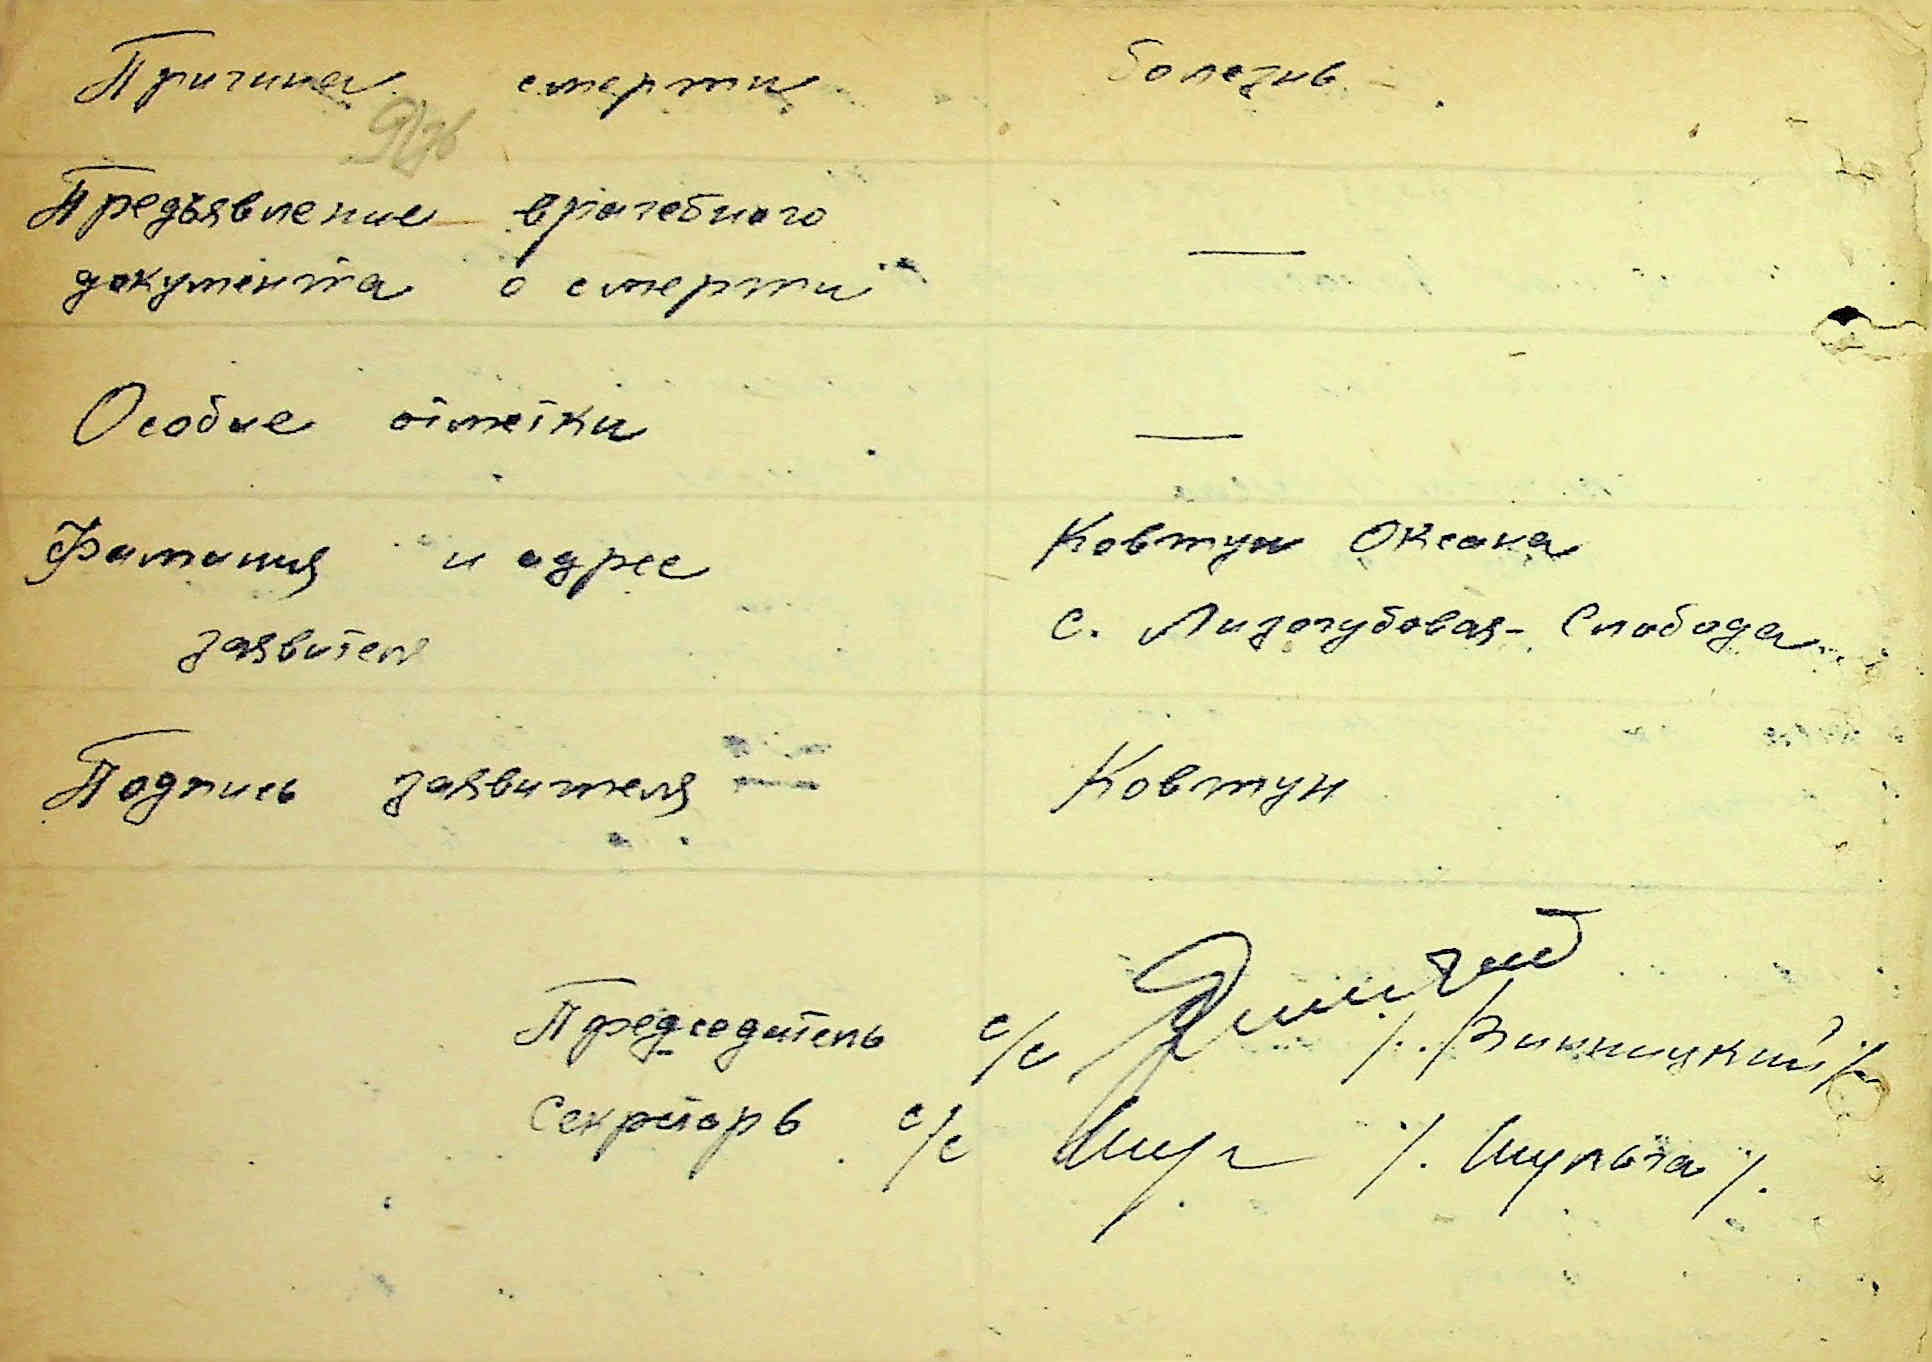 Причина смерти болезнь
Предъявление врачебного
документа о смерти —
Особые отметки —
Фамилия и адрес Ковтун Оксана
заявителя с. Лизогубовая-Слобода
Подпись заявителя Ковтун
Председатель с/с /. Винницкий /
Секретарь с/с /. Шульга /.